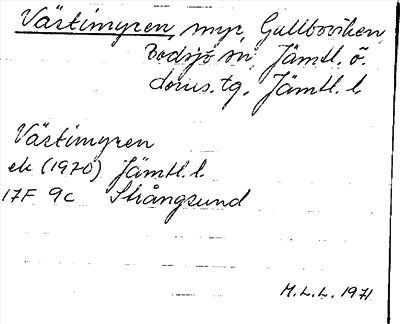 Västimyren, myr, Gullboviken,
Bodsjö sn, Jämtl. ö.
doms. tg, Jämtl. l.
Västimyren
ek (1970) Jämtl. l.
17F 9c Strångsund
M.L.L. 1971